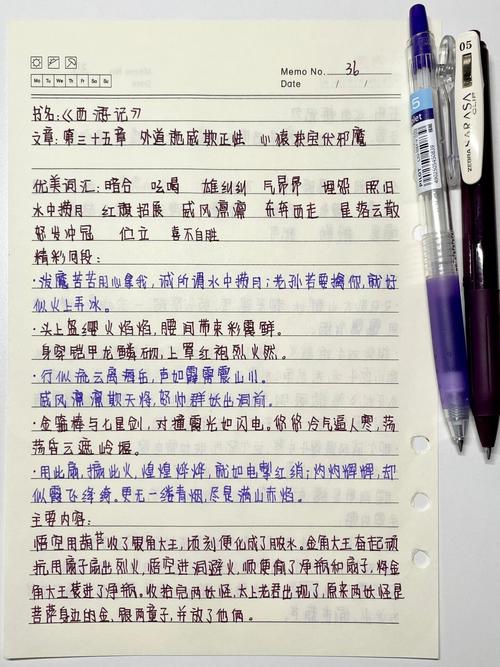 Memo No. 36
Mo Tu We Th Fr Sa Su
Date / /
书名:《西游记》
文章:第三十五章 外道施威欺正性 心猿获宝伏邪魔
优美词汇:暗合 吆喝 雄纠纠 气昂昂 押船 照旧
水中捞月 红旗招展 威风凛凛 东奔西走 星落云散
怒发冲冠 伫立 喜不自胜
精彩句段:
·泼魔苦苦用心拿我,诚所谓水中捞月;老孙若要擒你,就好
似火上弄冰。
·头上盔缨火焰焰,腰间带束彩霞鲜。
身穿铠甲龙鳞砌,上罩红袍烈火然。
·行似流云离海岳,声如霹雳震山川。
威风凛凛欺天将,怒帅群妖出洞前。
·金箍棒与七星剑,对撞霞光如闪电。悠悠冷气逼人寒,荡
荡昏云遮岭堰。
·用此扇,搧此火,煌煌烨烨,就如电掣红绡;灼灼辉辉,却
似霞飞绛绮。更无一缕青烟,尽是满山赤焰。
主要内容:
悟空用葫芦收了银角大王,顷刻便化成了脓水。金角大王奋起顽
抗用扇子扇出烈火,悟空进洞避火,顺便偷了净瓶和扇子,将金
角大王装进了净瓶。收拾完两妖怪,太上老君出现了,原来两妖怪是
菩萨身边的金、银两童子,并放了他俩。
05
ZEBRA SARASA CLIP
5